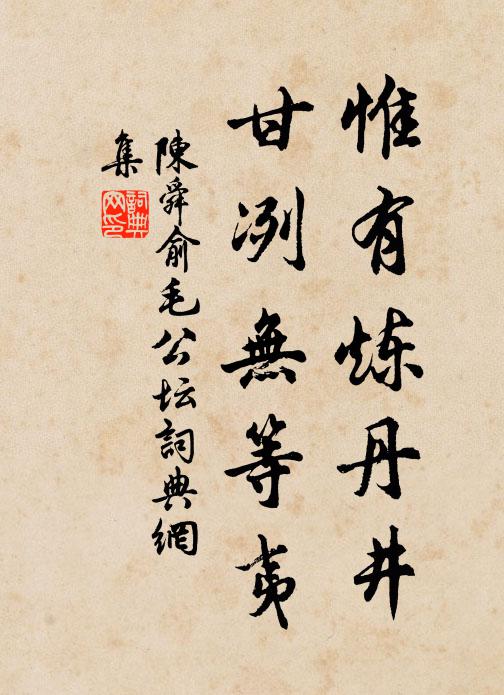 惟有炼丹井
甘冽無等夷
陳舜俞毛公坛詞典網
集
詞典网印